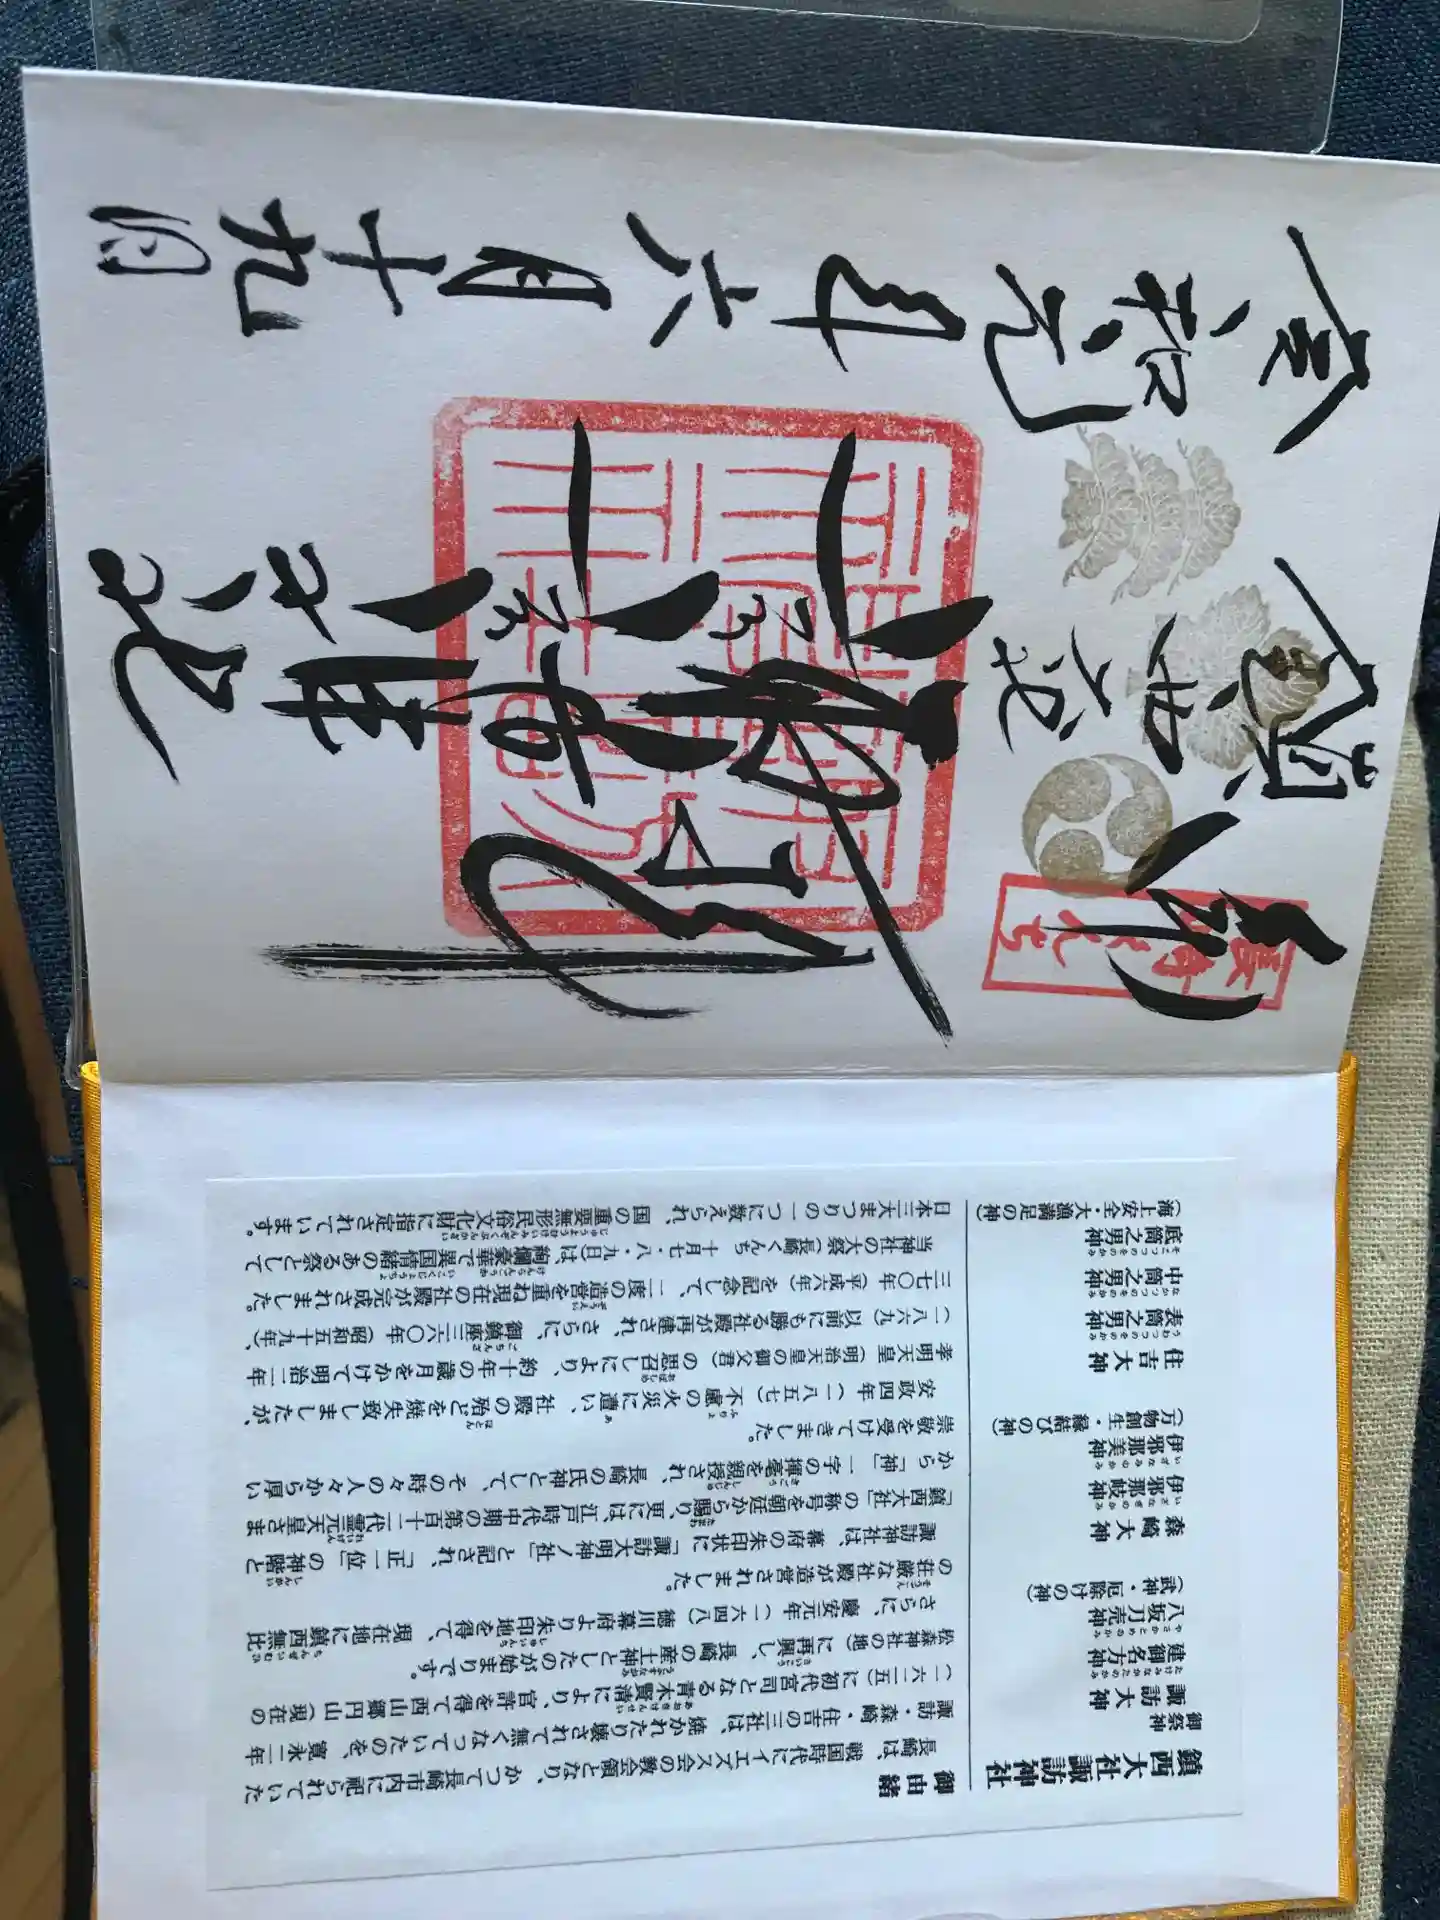 長崎くんち
令和元年六月十九日
鎮西大社諏訪神社
御祭神
諏訪大神
建御名方神
八坂刀売神
(武神・厄除けの神)
森崎大神
伊邪那岐神
伊邪那美神
(万物創生・縁結びの神)
住吉大神
表筒之男神
中筒之男神
底筒之男神
(海上安全・大漁満足の神)
御由緒
長崎は、戦国時代にイエズス会の教会領となり、かつて長崎市内に祀られていた
諏訪・森崎・住吉の三社は、焼かれたり壊されて無くなっていたのを、寛永二年
(一六二五)に初代宮司となる青木賢清により、官許を得て西山郷円山(現在の
松森神社の地)に再興し、長崎の産土神としたのが始まりです。
さらに、慶安元年(一六四八)徳川幕府より朱印地を得て、現在地に鎮西無比
の荘厳な社殿が造営されました。
諏訪神社は、幕府の朱印状に「諏訪大明神ノ社」と記され、「正一位」の神階と
「鎮西大社」の称号を朝廷から賜り、更には、江戸時代中期の第百十二代霊元天皇さま
から「神」一字の揮毫を親授され、長崎の氏神として、その時々の人々から厚い
崇敬を受けてきました。
安政四年(一八五七)不慮の火災に遭い、社殿の殆どを焼失致しましたが、
孝明天皇(明治天皇の御父君)の思召しにより、約十年の歳月をかけて明治二年
(一八六九)以前にも勝る社殿が再建され、さらに、御鎮座三六〇年(昭和五十九年)、
三七〇年(平成六年)を記念して、二度の造営を重ね現在の社殿が完成されました。
当神社の大祭(長崎くんち 十月七・八・九日)は、絢爛豪華で異国情緒のある祭として
日本三大まつりの一つに数えられ、国の重要無形民俗文化財に指定されています。